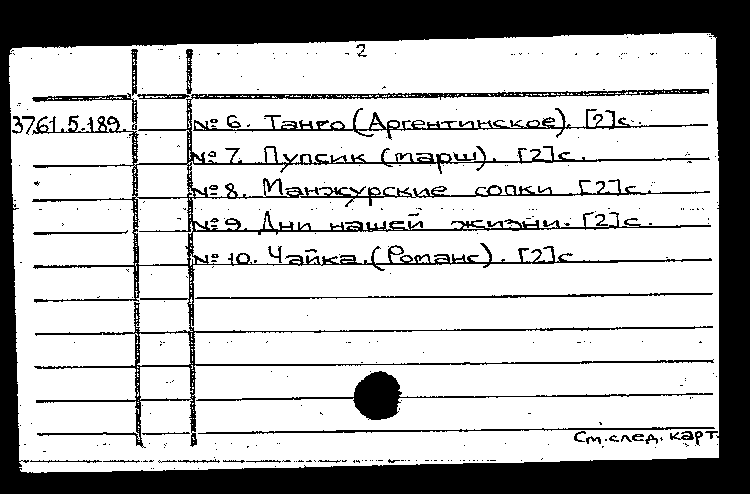 2
3761.5.189. № 6. Танго (Аргентинское). [2]с.
№ 7. Пупсик (марш). [2]с.
№ 8. Манжурские сопки. [2]с.
№ 9. Дни нашей жизни. [2]с.
№ 10. Чайка. (Романс). [2]с
См. след. карт.